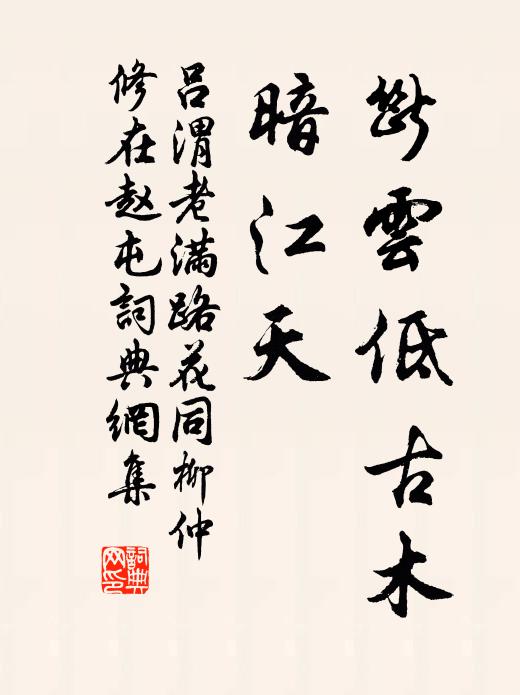 斷雲低古木
暗江天
呂渭老滿路花同柳仲
修在赵屯詞典網集
詞典网印